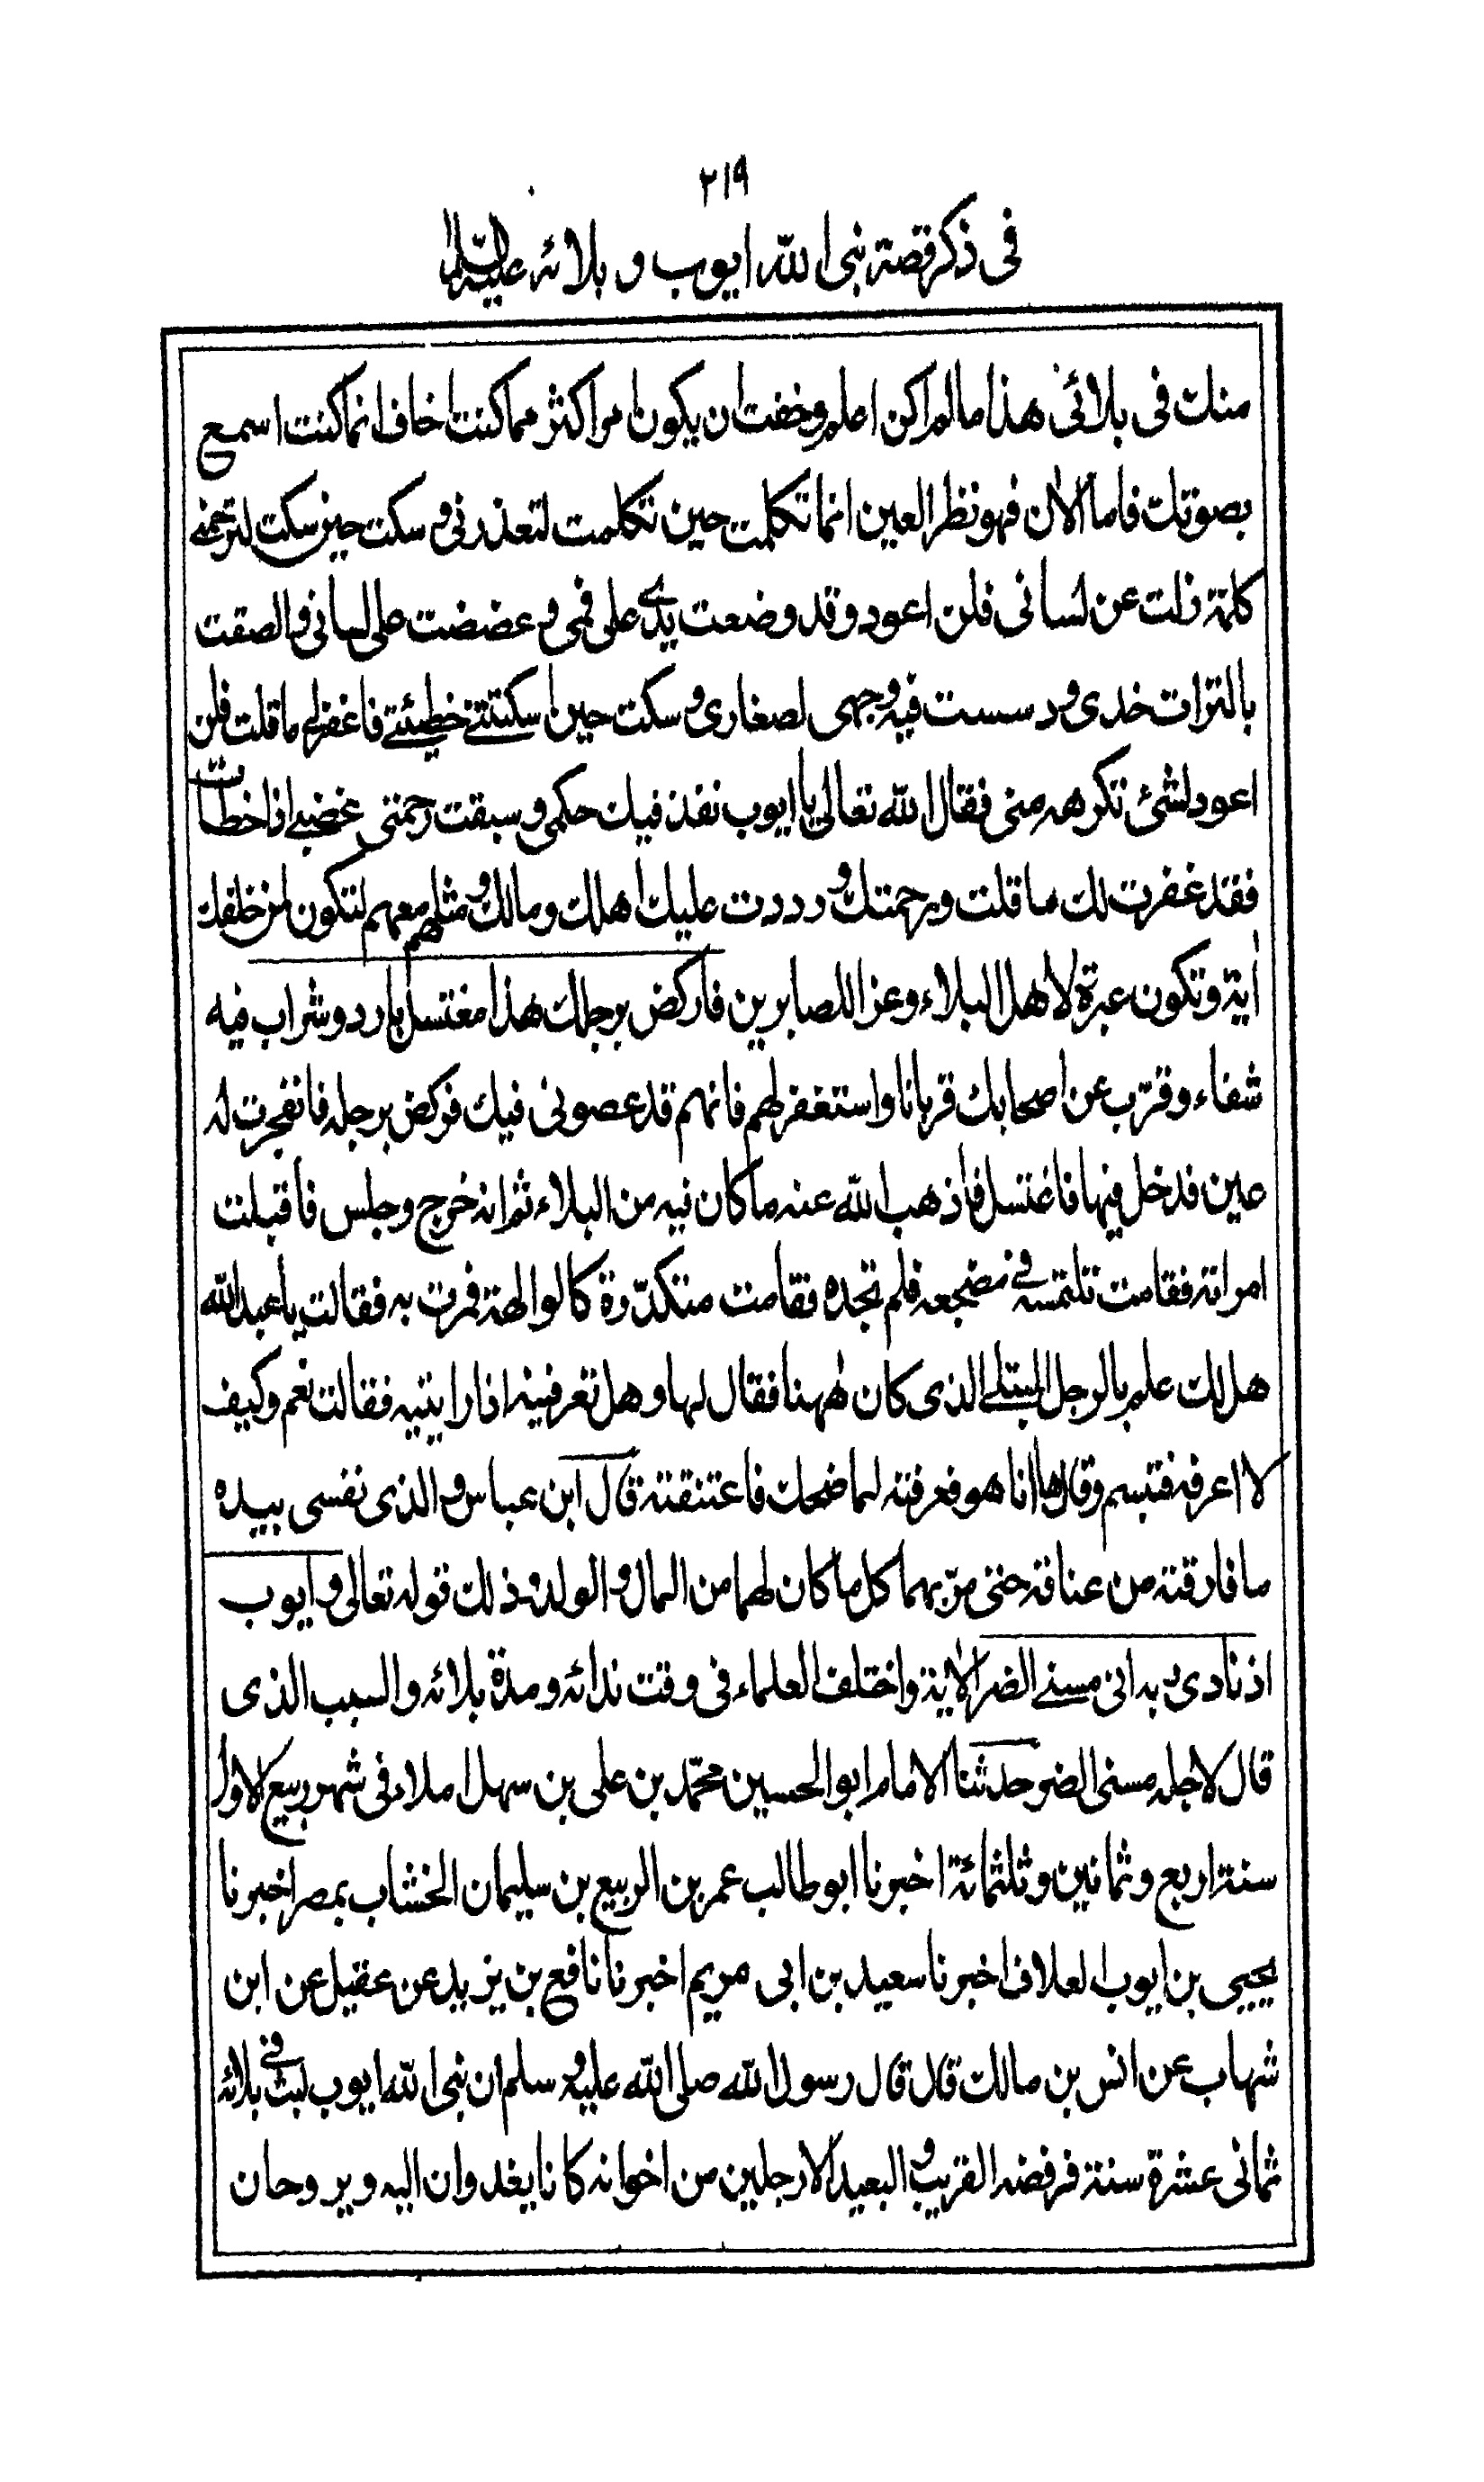 ٢١٩
فى ذكر قصة نبى الله ايوب و بلائه عليه السلام
منك فى بلائى هذا ما لم اكن اعلم وخفت ان يكون امر اكثر مما كنت اخاف انما كنت اسمع
بصوتك فاما الان فهو نظر العين انما تكلمت حين تكلمت لتعذرنى و سكت حين سكت لترحمنى
كلمة زلت عن لسانى فلن اعود و قد وضعت يدى على فمى و عضضت على لسانى و الصقت
بالتراب خدى و دسست فيه وجهى لصغارى و سكت حين اسكتتنى خطيئتى فاغفر لى ما قلت فلن
اعود لشئ تكرهه منى فقال الله تعالى يا ايوب نفذ فيك حكمى و سبقت رحمتى غضبى اذا اخطأت
فقد غفرت لك ما قلت و رحمتك و رددت عليك اهلك و مالك و مثلهم معهم لتكون لمن خلفك
اية و تكون عبرة لاهل البلاء و عزا للصابرين فاركض برجلك هذا مغتسل بارد و شراب فيه
شفاء و قرّب عن اصحابك قربانا و استغفر لهم فانهم قد عصونى فيك فركض برجله فانفجرت له
عين فدخل فيها فاغتسل فاذهب الله عنه ما كان فيه من البلاء ثم انه خرج و جلس فاقبلت
امراته فقامت تلتمسه فى مضجعه فلم تجده فقامت متكدّرة كالوالهة فمرت به فقالت يا عبد الله
هل لك علم بالرجل المبتلى الذى كان ههنا فقال لها و هل تعرفينه اذا رايتيه فقالت نعم و كيف
لا اعرفه فتبسم و قال ها انا هو فعرفته لما ضحك فاعتنقته قال ابن عباس و الذى نفسى بيده
ما فارقته من عناقه حتى مرّ بهما كل ما كان لهما من المال و الولد و ذلك قوله تعالى و ايوب
اذ نادى ربه انى مسنى الضر الاية و اختلف العلماء فى وقت ندائه و مدة بلائه و السبب الذى
قال لاجله مسنى الضر حدثنا الامام ابو الحسين محمّد بن على بن سهل املاء فى شهر ربيع الاول
سنة اربع و ثمانين و ثلثمائة اخبرنا ابو طالب عمر بن الربيع بن سليمان الخشاب بمصر اخبرنا
يحيى بن ايوب العلاف اخبرنا سعيد بن ابى مريم اخبرنا نافع بن يزيد عن عقيل عن ابن
شهاب عن انس بن مالك قال قال رسول الله صلى الله عليه و سلم ان نبى الله ايوب لبث فى بلائه
ثمانى عشرة سنة فرفضه القريب و البعيد الا رجلين من اخوانه كانا يغدوان اليه و يروحان